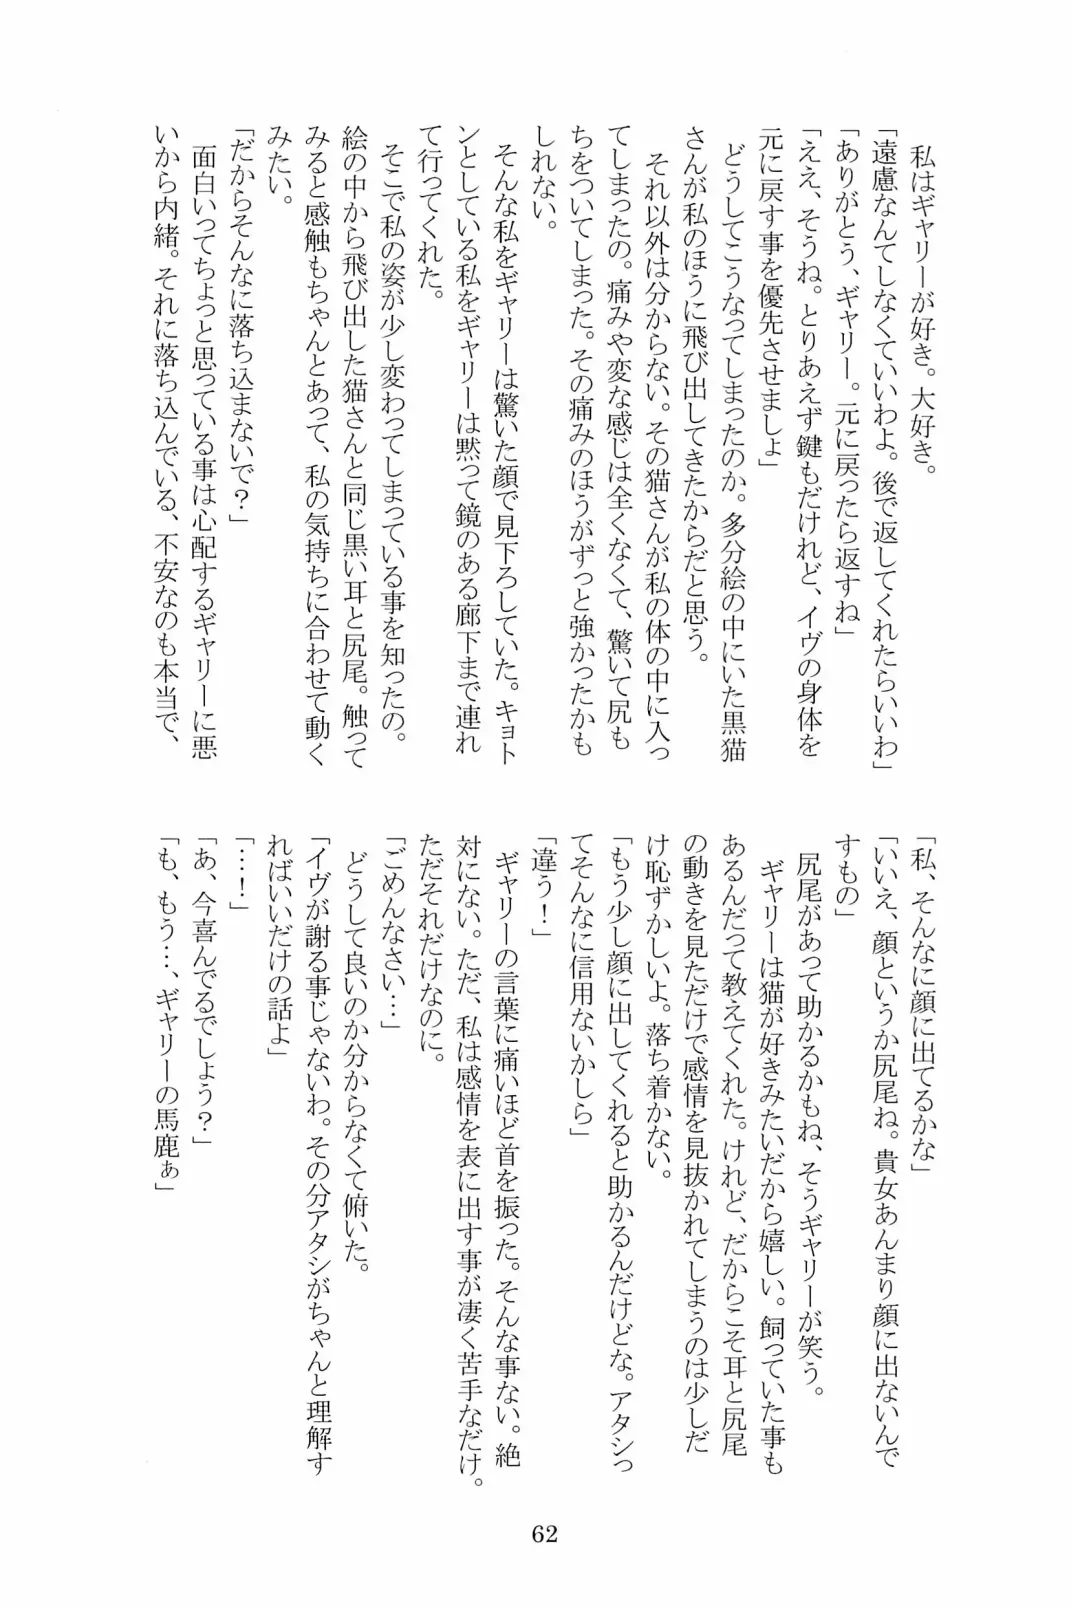 私はギャリーが好き。大好き。
「遠慮なんてしなくていいわよ。後で返してくれたらいいわ」
「ありがとう、ギャリー。元に戻ったら返すね」
「ええ、そうね。とりあえず鍵もだけれど、イヴの身体を
元に戻す事を優先させましょ」
どうしてこうなってしまったのか。多分絵の中にいた黒猫
さんが私のほうに飛び出してきたからだと思う。
それ以外は分からない。その猫さんが私の体の中に入っ
てしまったの。痛みや変な感じは全くなくて、驚いて尻も
ちをついてしまった。その痛みのほうがずっと強かったかも
しれない。
そんな私をギャリーは驚いた顔で見下ろしていた。キョト
ンとしている私をギャリーは黙って鏡のある廊下まで連れ
て行ってくれた。
そこで私の姿が少し変わってしまっている事を知ったの。
絵の中から飛び出した猫さんと同じ黒い耳と尻尾。触って
みると感触もちゃんとあって、私の気持ちに合わせて動く
みたい。
「だからそんなに落ち込まないで？」
面白いってちょっと思っている事は心配するギャリーに悪
いから内緒。それに落ち込んでいる、不安なのも本当で、
「私、そんなに顔に出てるかな」
「いいえ、顔というか尻尾ね。貴女あんまり顔に出ないんで
すもの」
尻尾があって助かるかもね、そうギャリーが笑う。
ギャリーは猫が好きみたいだから嬉しい。飼っていた事も
あるんだって教えてくれた。けれど、だからこそ耳と尻尾
の動きを見ただけで感情を見抜かれてしまうのは少しだ
け恥ずかしいよ。落ち着かない。
「もう少し顔に出してくれると助かるんだけどな。アタシっ
てそんなに信用ないかしら」
「違う！」
ギャリーの言葉に痛いほど首を振った。そんな事ない。絶
対にない。ただ、私は感情を表に出す事が凄く苦手なだけ。
ただそれだけなのに。
「ごめんなさい…」
どうして良いのか分からなくて俯いた。
「イヴが謝る事じゃないわ。その分アタシがちゃんと理解す
ればいいだけの話よ」
「…！」
「あ、今喜んでるでしょう？」
「も、もう…、ギャリーの馬鹿ぁ」
62